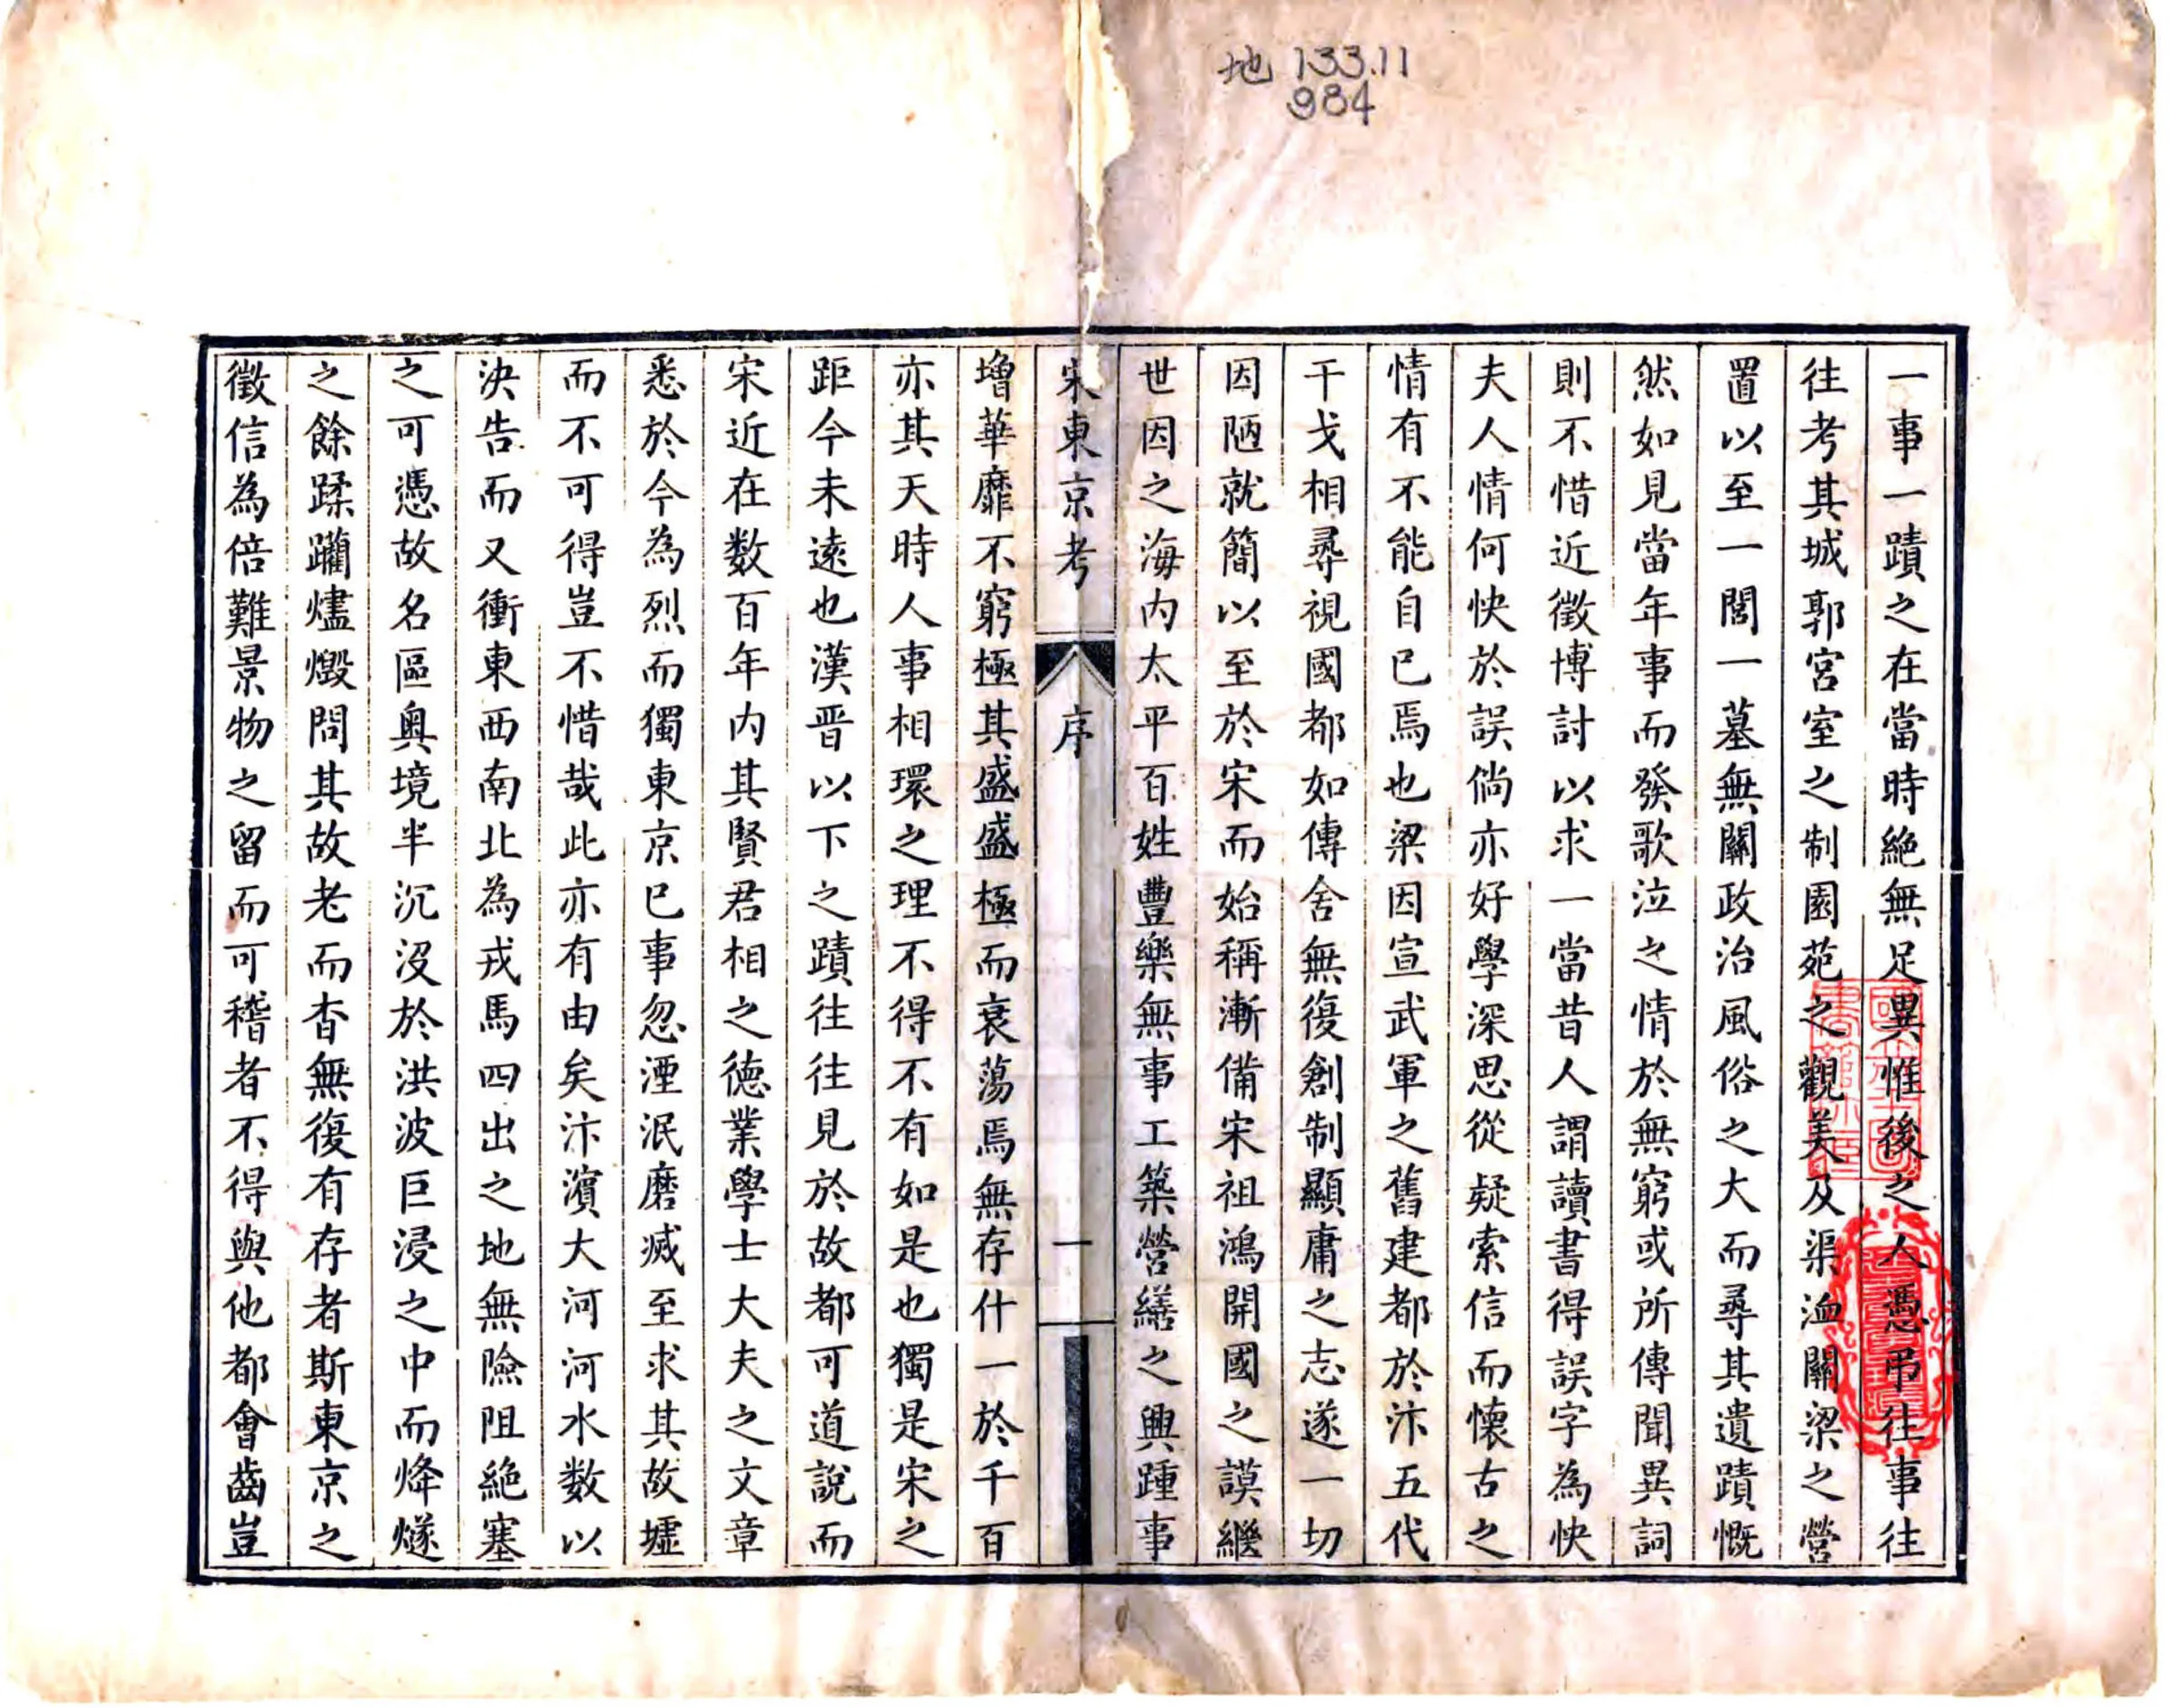 地 133.11
984
一事一蹟之在當時絕無足異惟後之人憑弔往事往
往考其城郭宮室之制園苑之觀美及渠洫關梁之營
置以至一閣一墓無關政治風俗之大而尋其遺蹟慨
然如見當年事而發歌泣之情於無窮或所傳聞異詞
則不惜近徵博討以求一當昔人謂讀書得誤字為快
夫人情何快於誤倘亦好學深思從疑索信而懷古之
情有不能自已焉也梁因宣武軍之舊建都於汴五代
干戈相尋視國都如傳舍無復創制顯庸之志遂一切
因陋就簡以至於宋而始稱漸備宋祖鴻開國之謨繼
世因之海內太平百姓豐樂無事工築營繕之興踵事
宋東京考
序
一
增華靡不窮極其盛盛極而衰蕩焉無存什一於千百
亦其天時人事相環之理不得不有如是也獨是宋之
距今未遠也漢晋以下之蹟往往見於故都可道說而
宋近在数百年内其賢君相之德業學士大夫之文章
悉於今為烈而獨東京已事忽湮泯磨滅至求其故墟
而不可得豈不惜哉此亦有由矣汴濱大河河水数以
決告而又衝東西南北為戎馬四出之地無險阻絕塞
之可憑故名區奥境半沉沒於洪波巨浸之中而烽燧
之餘蹂躪燼燬問其故老而杳無復有存者斯東京之
徵信為倍難景物之留而可稽者不得與他都會齒豈